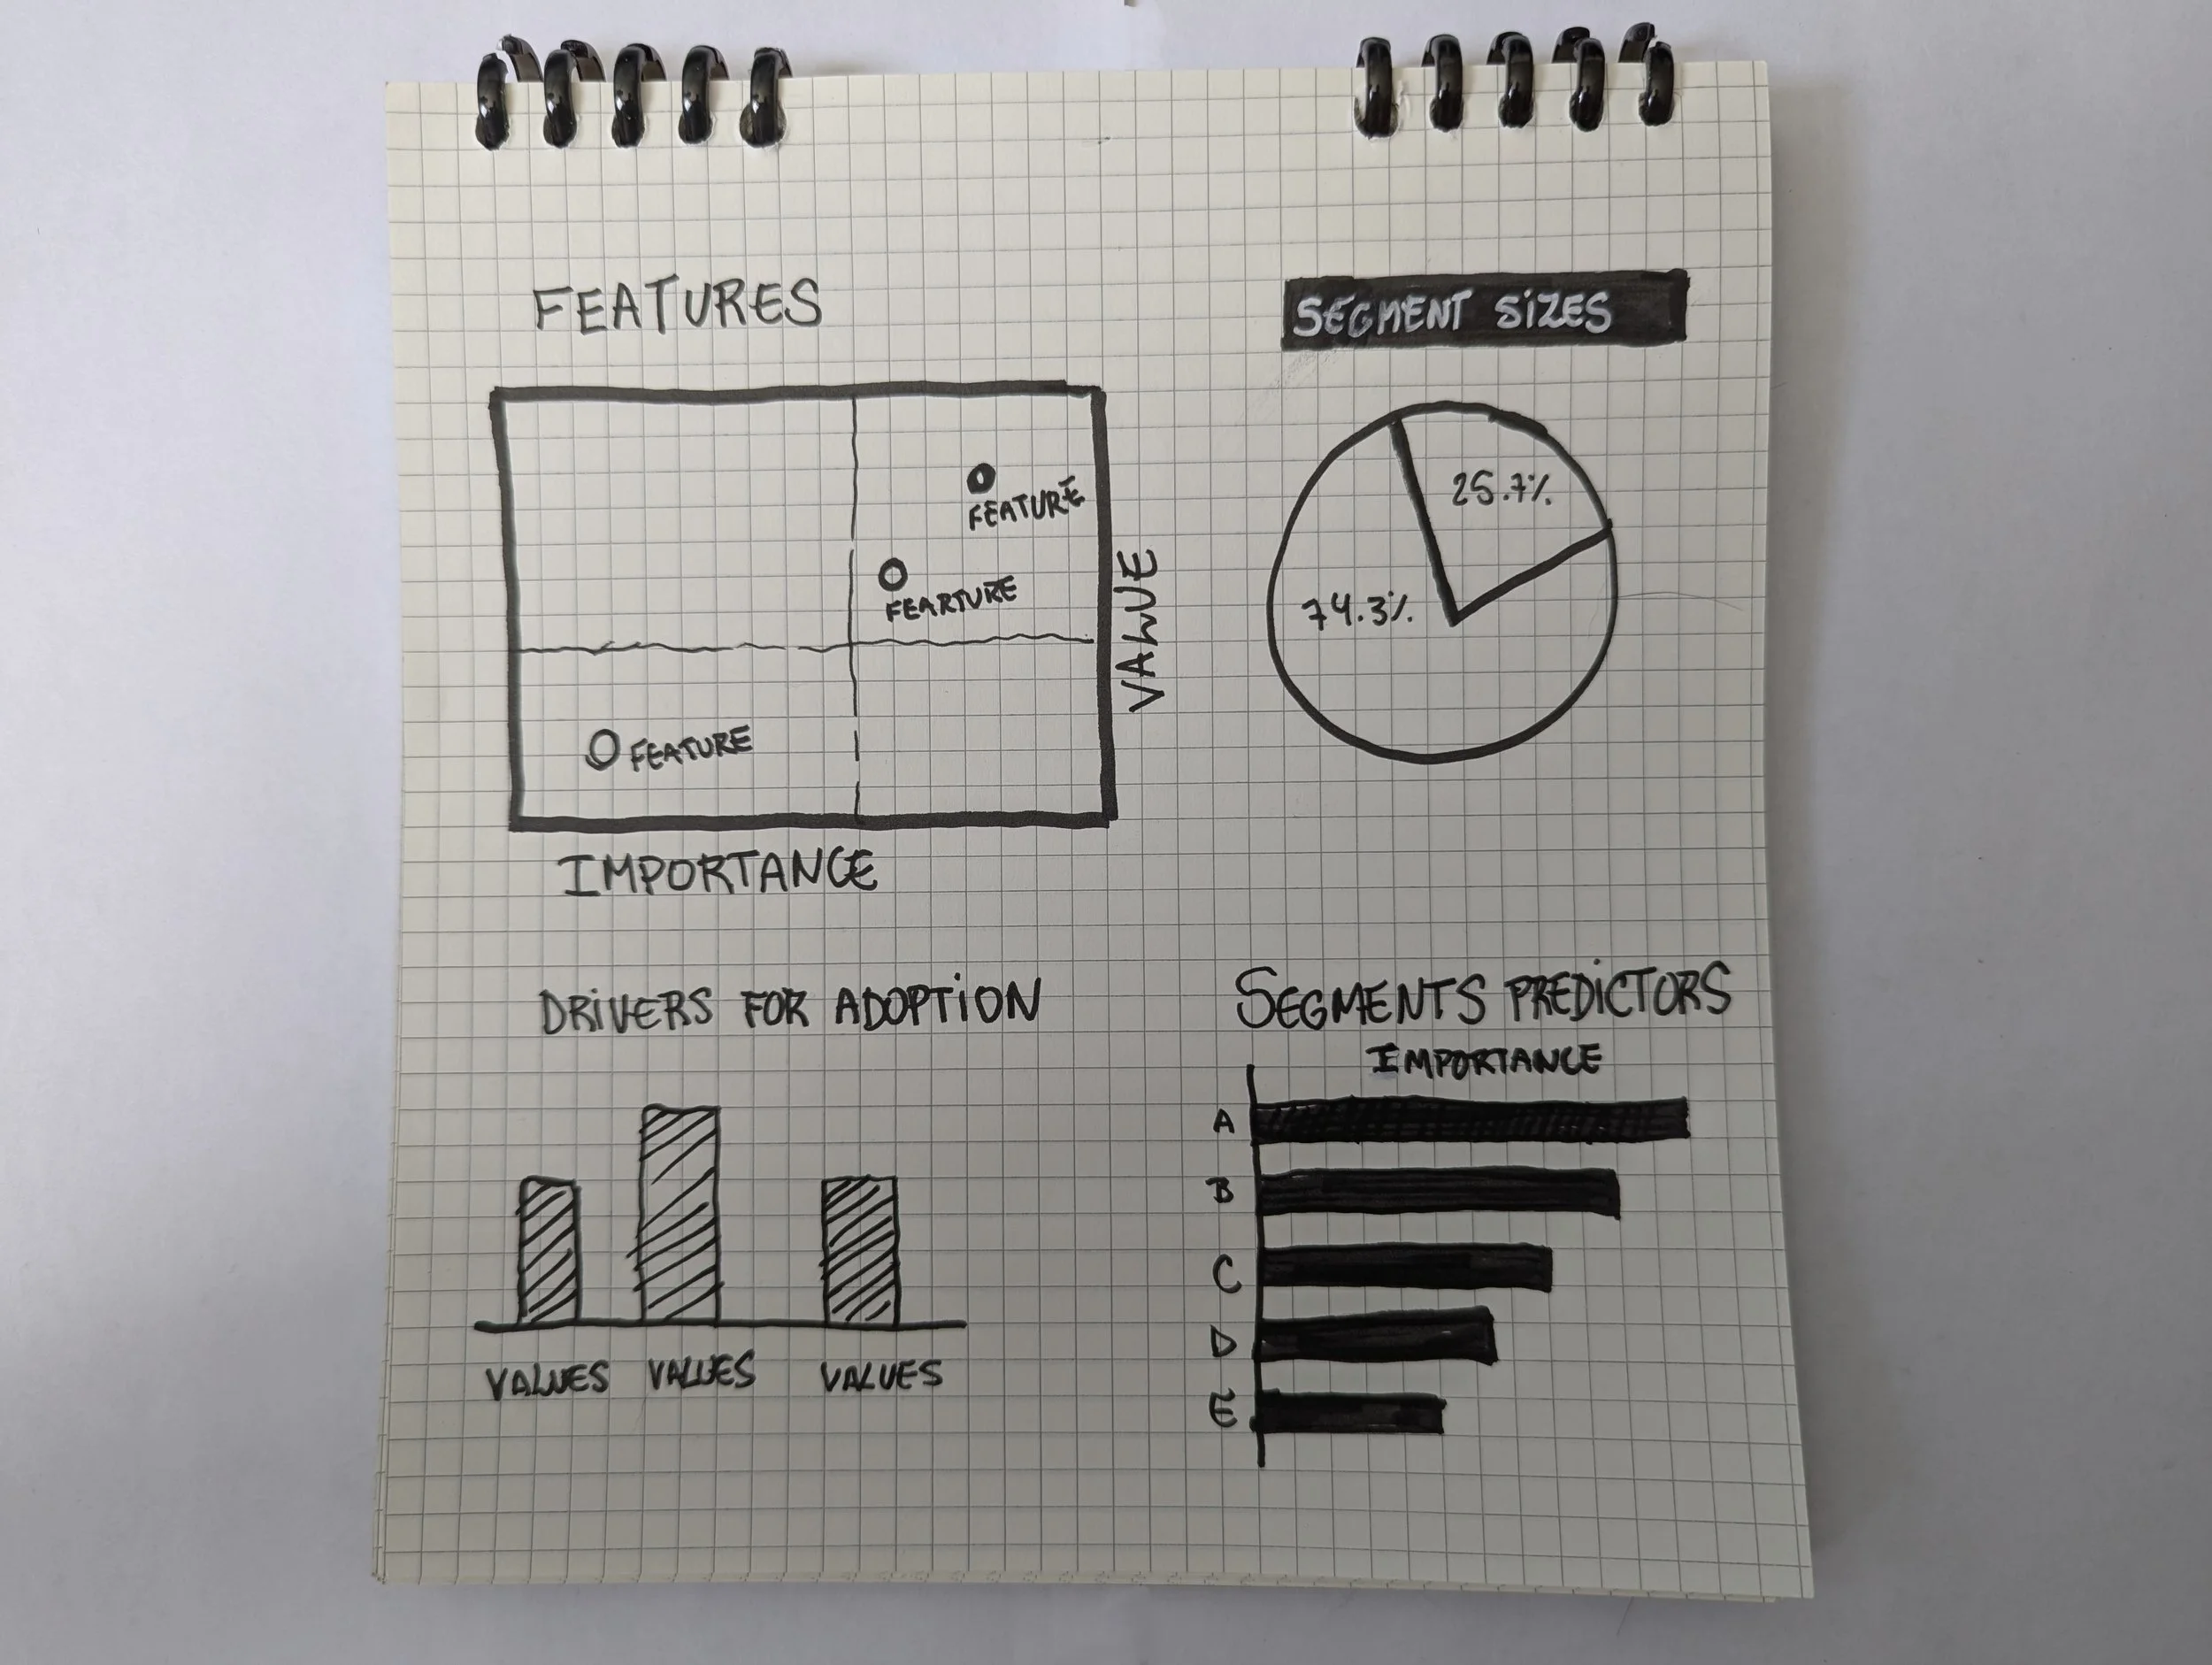 FEATURES
FEATURE
FEARTURE
FEATURE
VALUE
IMPORTANCE
SEGMENT SiZES
25.7%
74.3%
DRiVERS FOR ADOPTiON
VALUES VALUES VALUES
SEGMENTS PREDiCTORS
IMPORTANCE
A
B
C
D
E